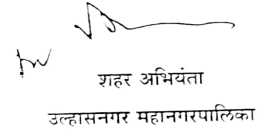 शहर अभियंता
उल्हासनगर महानगरपालिका